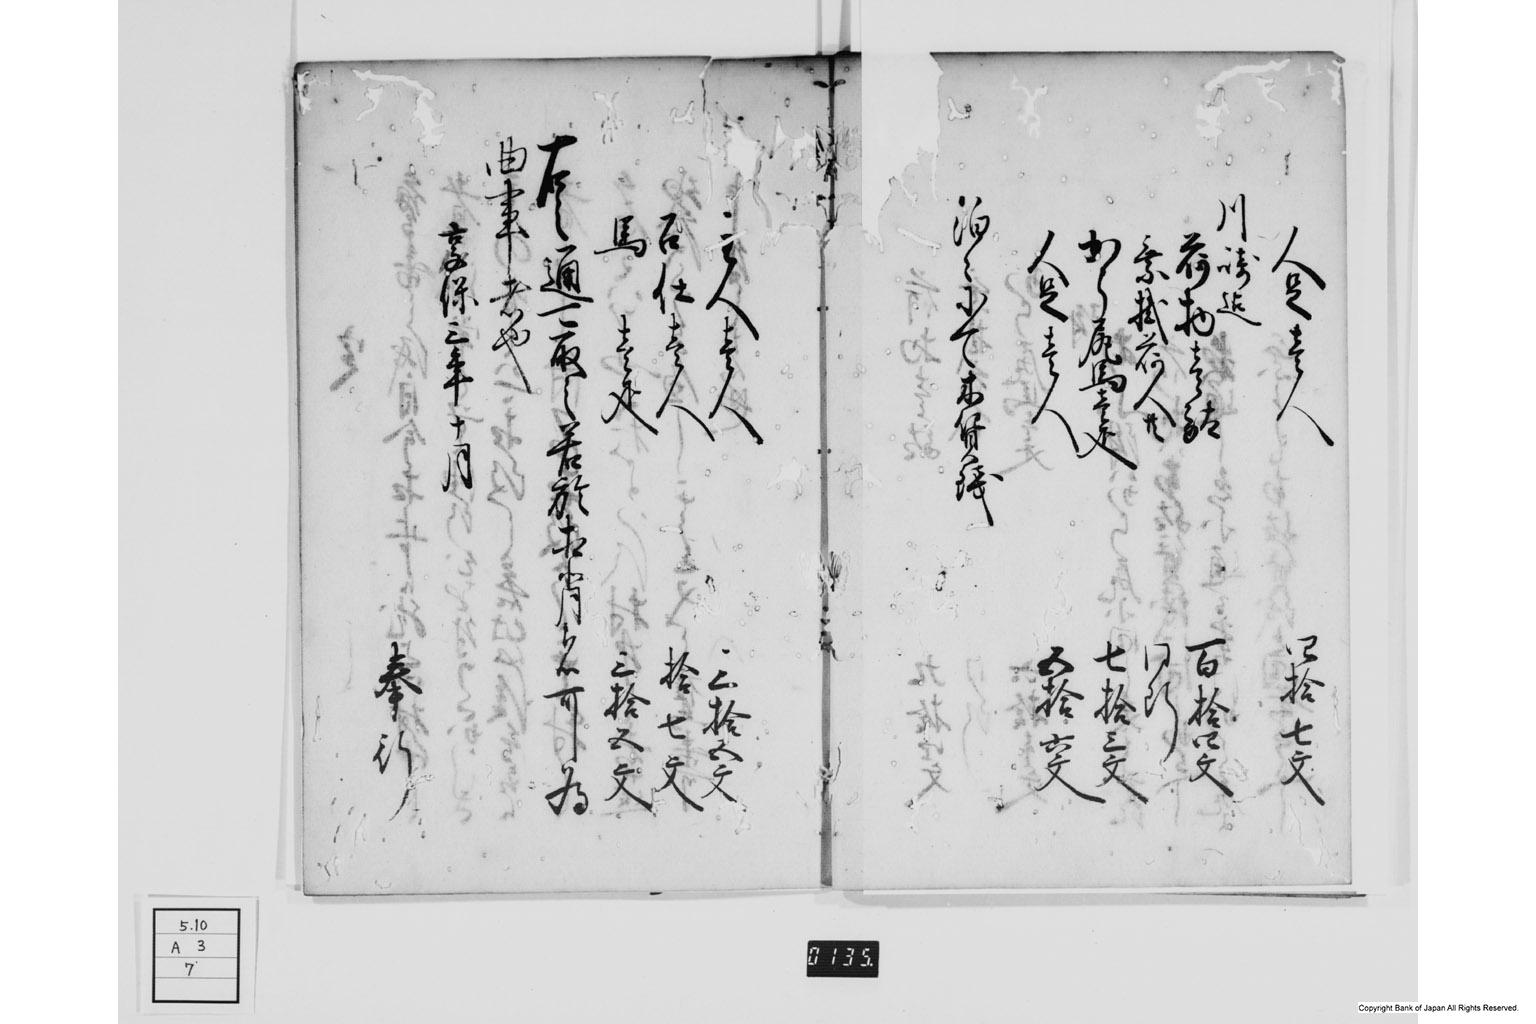 人足壱人 四拾七文
川崎迄
荷物壱駄 百拾四文
乗掛荷人共 同断
から尻馬壱疋 七拾三文
人足壱人 五拾六文
泊々ニて木賃銭
主人壱人 三拾五文
召仕壱人 拾七文
馬壱疋 三拾五文
右之通可取之若於相背ハ可為
曲事者也
享保三年十月
奉行
5.10
A 3
7
0135.
Copyright Bank of Japan All Rights Reserved.